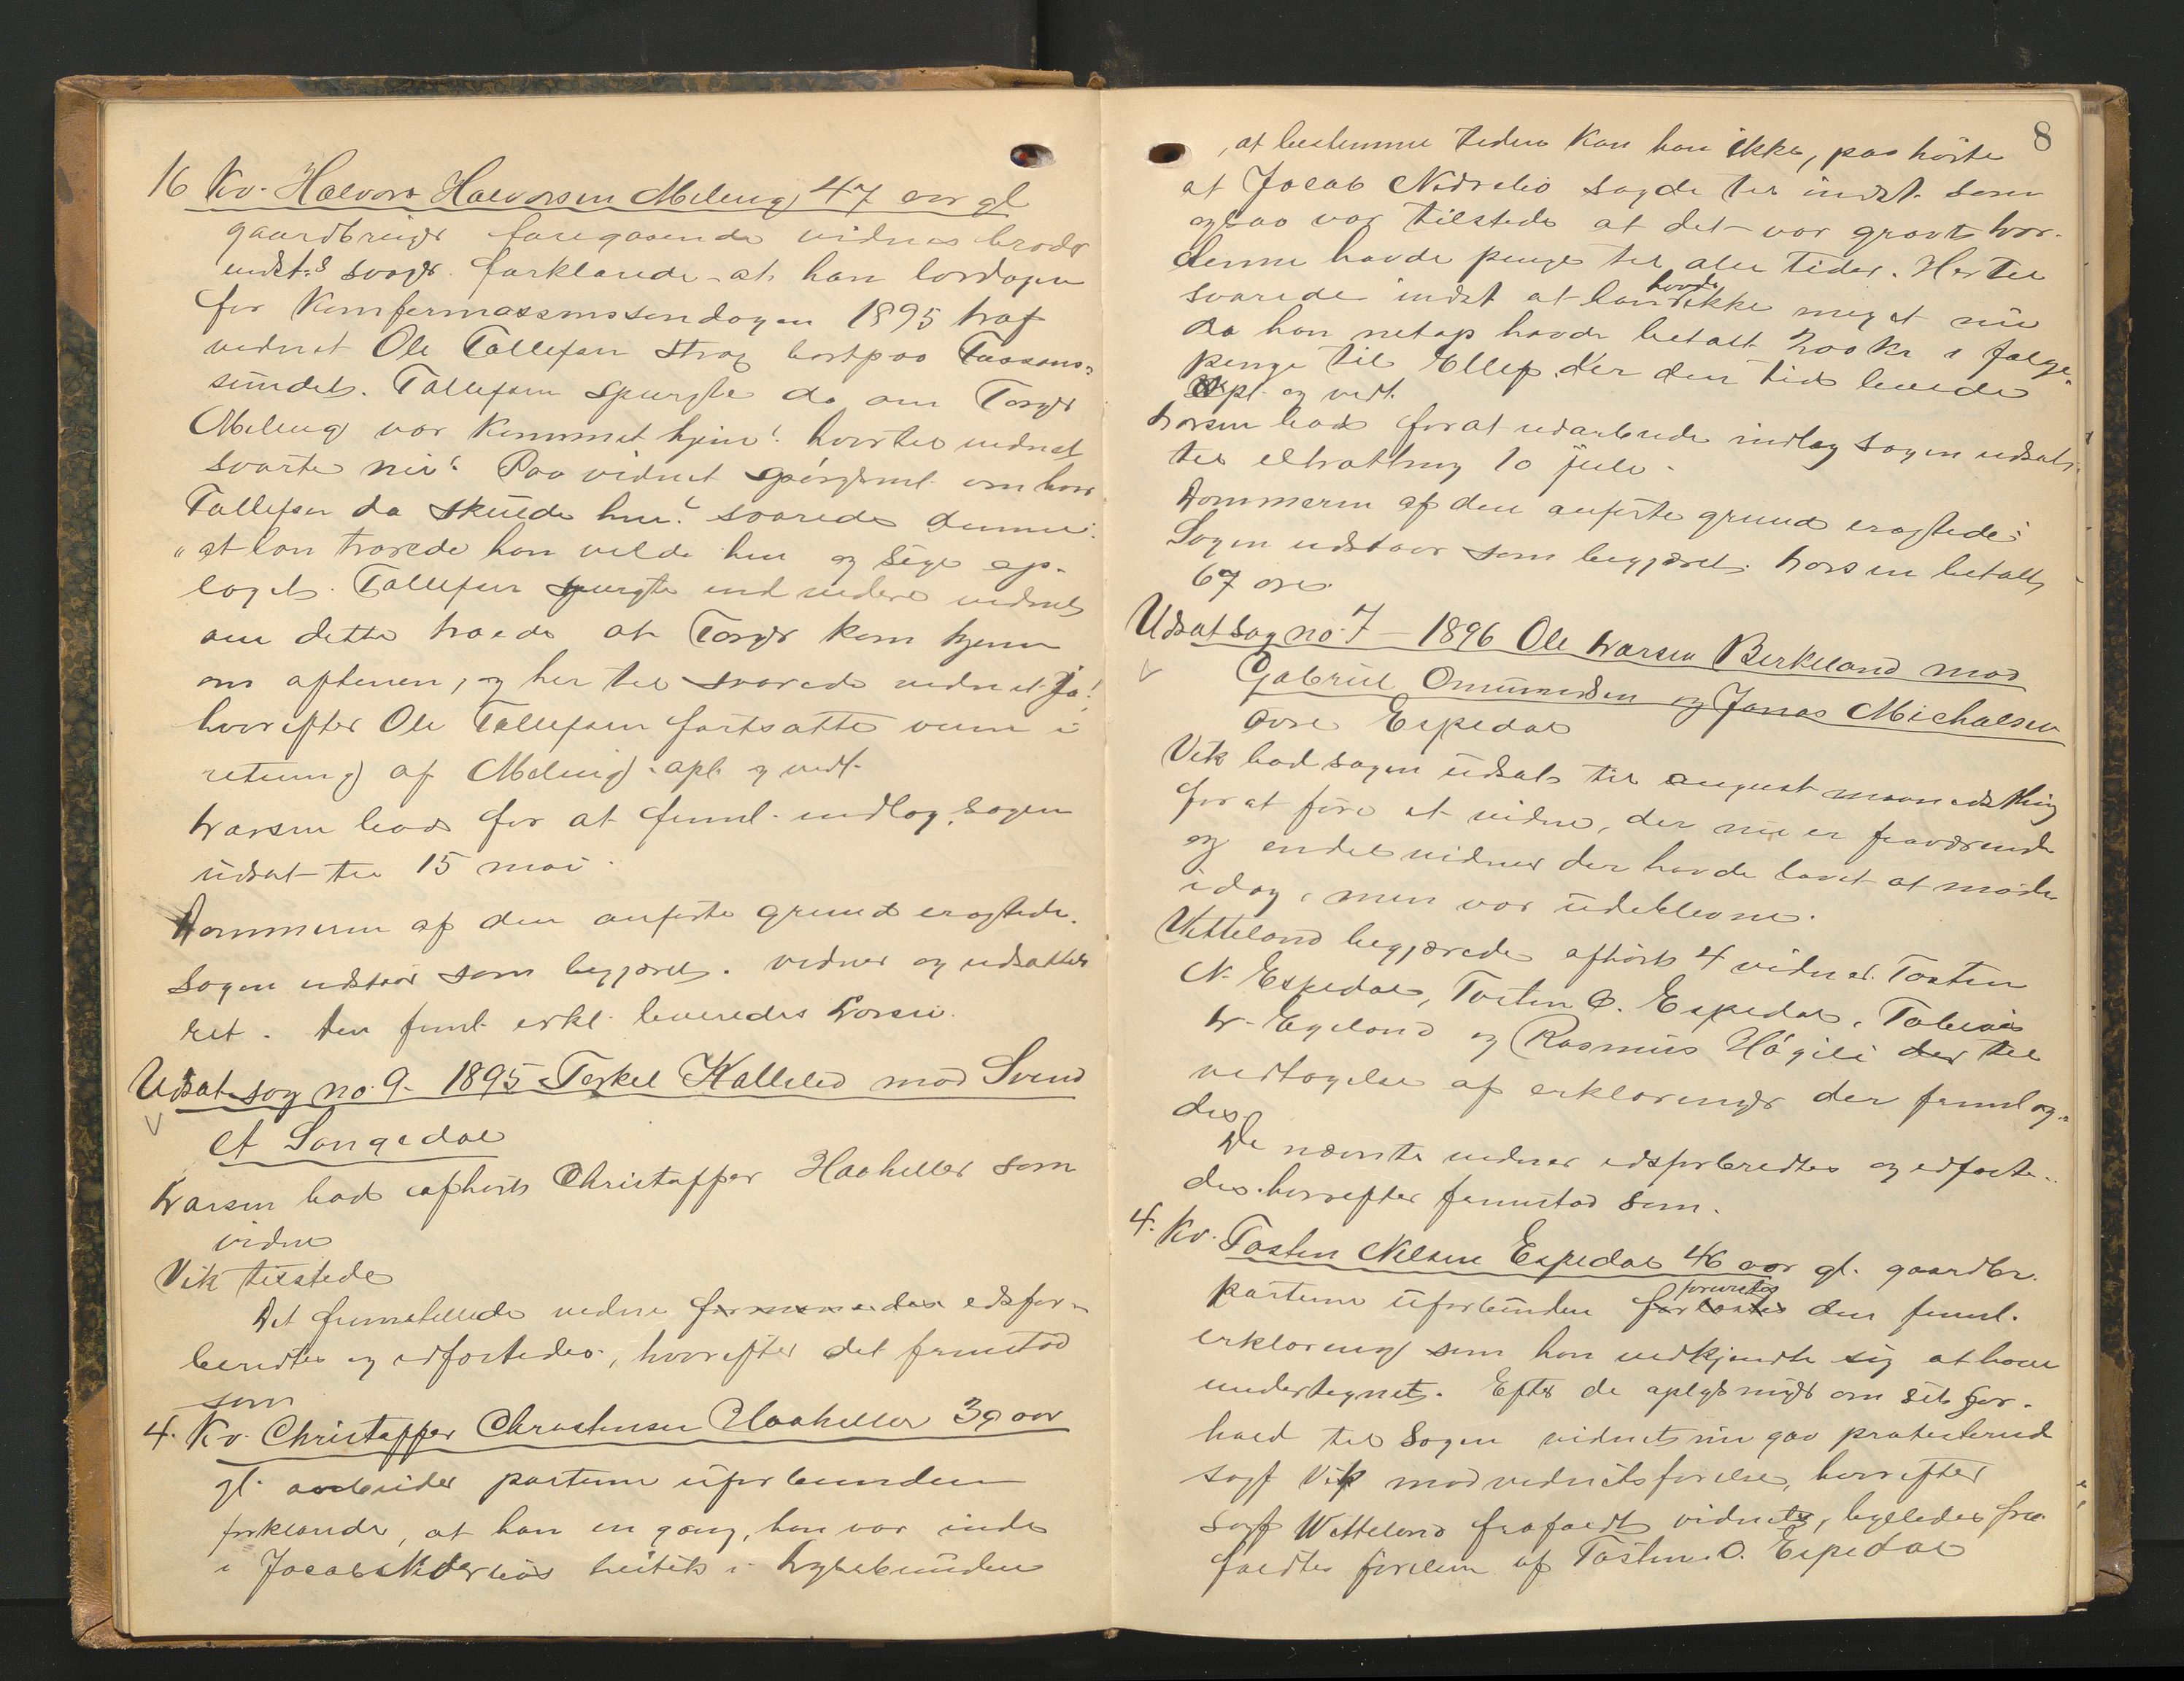 16 Kv. Halvor Halvorsen Meling, 47 aar gl
gaardbruger foregaaende vidnes broder
indst.s svoger. forklarede at han lordagen
for Konfermassonssøndagen 1895 traf
vidnet Ole Tallefsen strax bortpaa Taasens-
sundet. Tallefsen spurgte da om Torger
Meling var kommet hjem? hvortil vidnet
svarte nei! Paa vidnets spørgsml. om hvor
Tallefsen da skulde hen? svarede denne:
"at han troede han vilde hen og sige op-
laget. Tallefsen spurgte end videre vidnet
om dette troede at Torger kom hjem
om aftenen, og her til svarede vidnet Ja!
hvorefter Ole Tallefsen fortsatte veien i
retning af Meling. opl. og vedt.
Larsen bad for at freml. indlæg, sagen
udsat til 15 mai.
Dommeren af den anførte grund eragtede:
Sagen udstaar som begjæret. vidner og udsættes
ret. Den freml. erkl. leveredes Larsen.
Udsat sag no. 9 - 1895 Terkel Kallelid mod Svend
A Langedal
Larsen bad afhørt Christoffer Haaheller som
vidne
Vik tilstede
Det fremstillede vidne formanedes edsfor-
beredtes og edfæstedes, hvorefter det fremstod
som
4. Kv. Christoffer Christensen Haaheller 39 aar
gl. arbeider partene uforbunden
forklarede, at han en gang, han var inde
i Jacob Nedrelids butik i Lysebunden
8
, at bestemme tiden kan han ikke, paahørte
at Jacob Nedrelid sagde til indst. som
ogsaa var tilstede at det var gravt hvor
denne havde penge til alle tider. Hertil
svarede indst at han havde ikke meget nu
da han netop havde betalt 200 kr i følge-
penge til Ellef der den tid levede
opl. og vedt.
Larsen bad for at udarbeide indlæg sagen udsat
til extratting 10 juli.
Dommeren af den anførte grund eragtede:
Sagen udstaar som begjæret. Larsen betalte
67 øre.
Udsat sag no. 7 - 1896 Ole Larsen Birkeland mod
Gabriel Ommundsen og Jonas Michalsen
Øvre Espedal
Vik bad sagen udsat til august maanedsthing
for at føre et vidne, der nu er fraværende
og endel vidner der havde lovet at møde
idag, men var udeblevne.
Vetteland begjærede afhørt 4 vidner. Tosten
N. Espedal, Tosten O. Espedal, Tobias
L. Egeland og Rasmus Høgili der til
vedtagelse af erklæringer der fremlag-
des.
De nævnte vidner edsforberedtes og edfæste-
des. hvorefter fremstod som.
4. Kv. Tosten Nilsen Espedal 46 aar gl. gaardbr.
partene uforbunden forlæstes forevistes den freml.
erklæring som han vedkjendte sig at have
undertegnet. Efter de oplysninger om sit for-
hold til Sagen vidnet nu gav protesterede
sagf Vik mod vidnetsførelse, hvorefter
sagf Vetteland frafaldt vidnet, ligeledes fra-
faldtes førelsen af Tosten O. Espedal